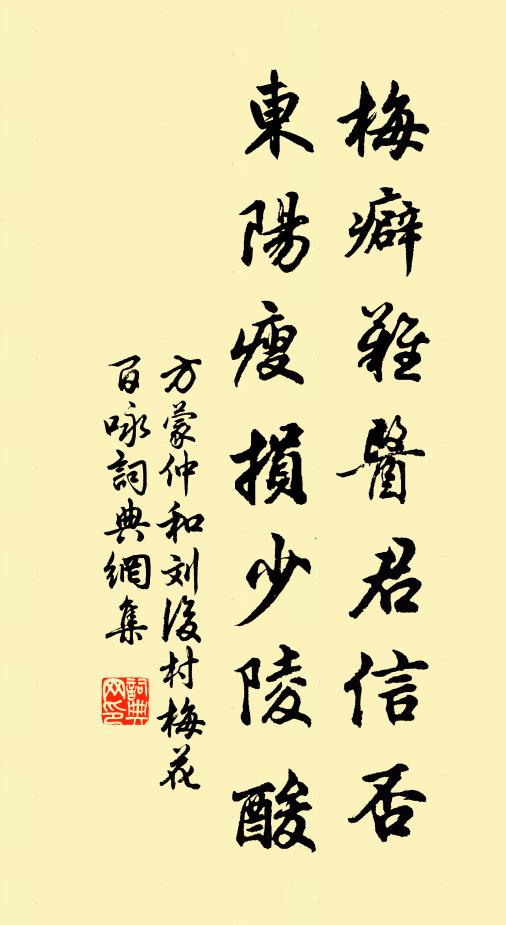 梅癖難醫君信否
東陽瘦損少陵酸
方蒙仲和刘後村梅花
百咏詞典網集
詞典网印